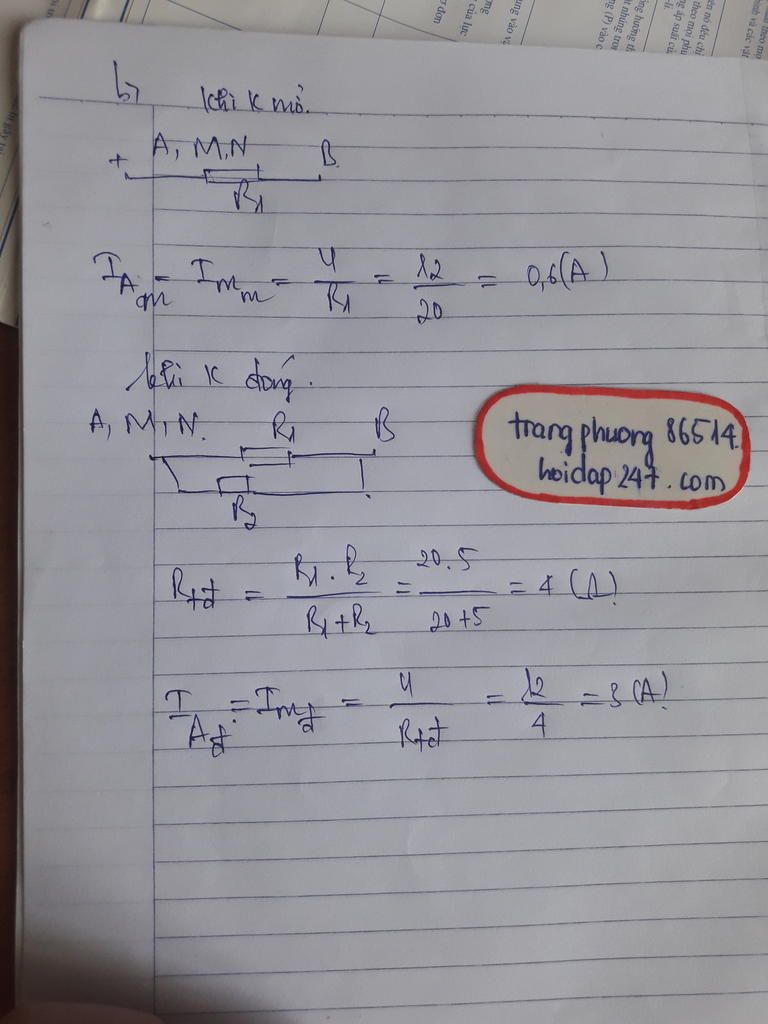 b,
Khi K mở.
+ A, M, N B
R1
I Am = I mm = U/R1 = 12/20 = 0,6(A)
khi K đóng.
A, M, N. R1 B
R2
trang phuong 86514.
hoidap 247. com
Rtđ = R1 . R2/R1+R2 = 20.5/20+5 = 4 (Ω)
I Ađ = I mđ = U/Rtđ = 12/4 = 3 (A)